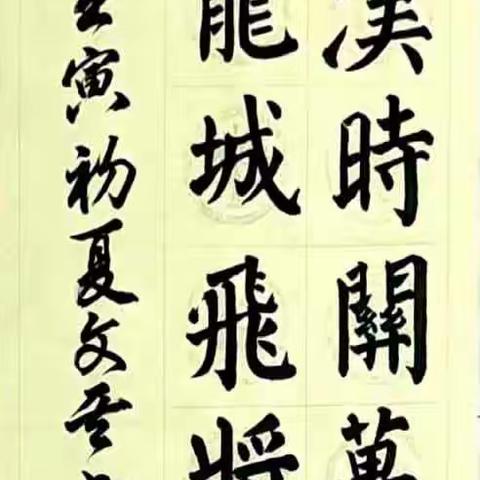 漢時關萬
龍城飛將
壬寅初夏文